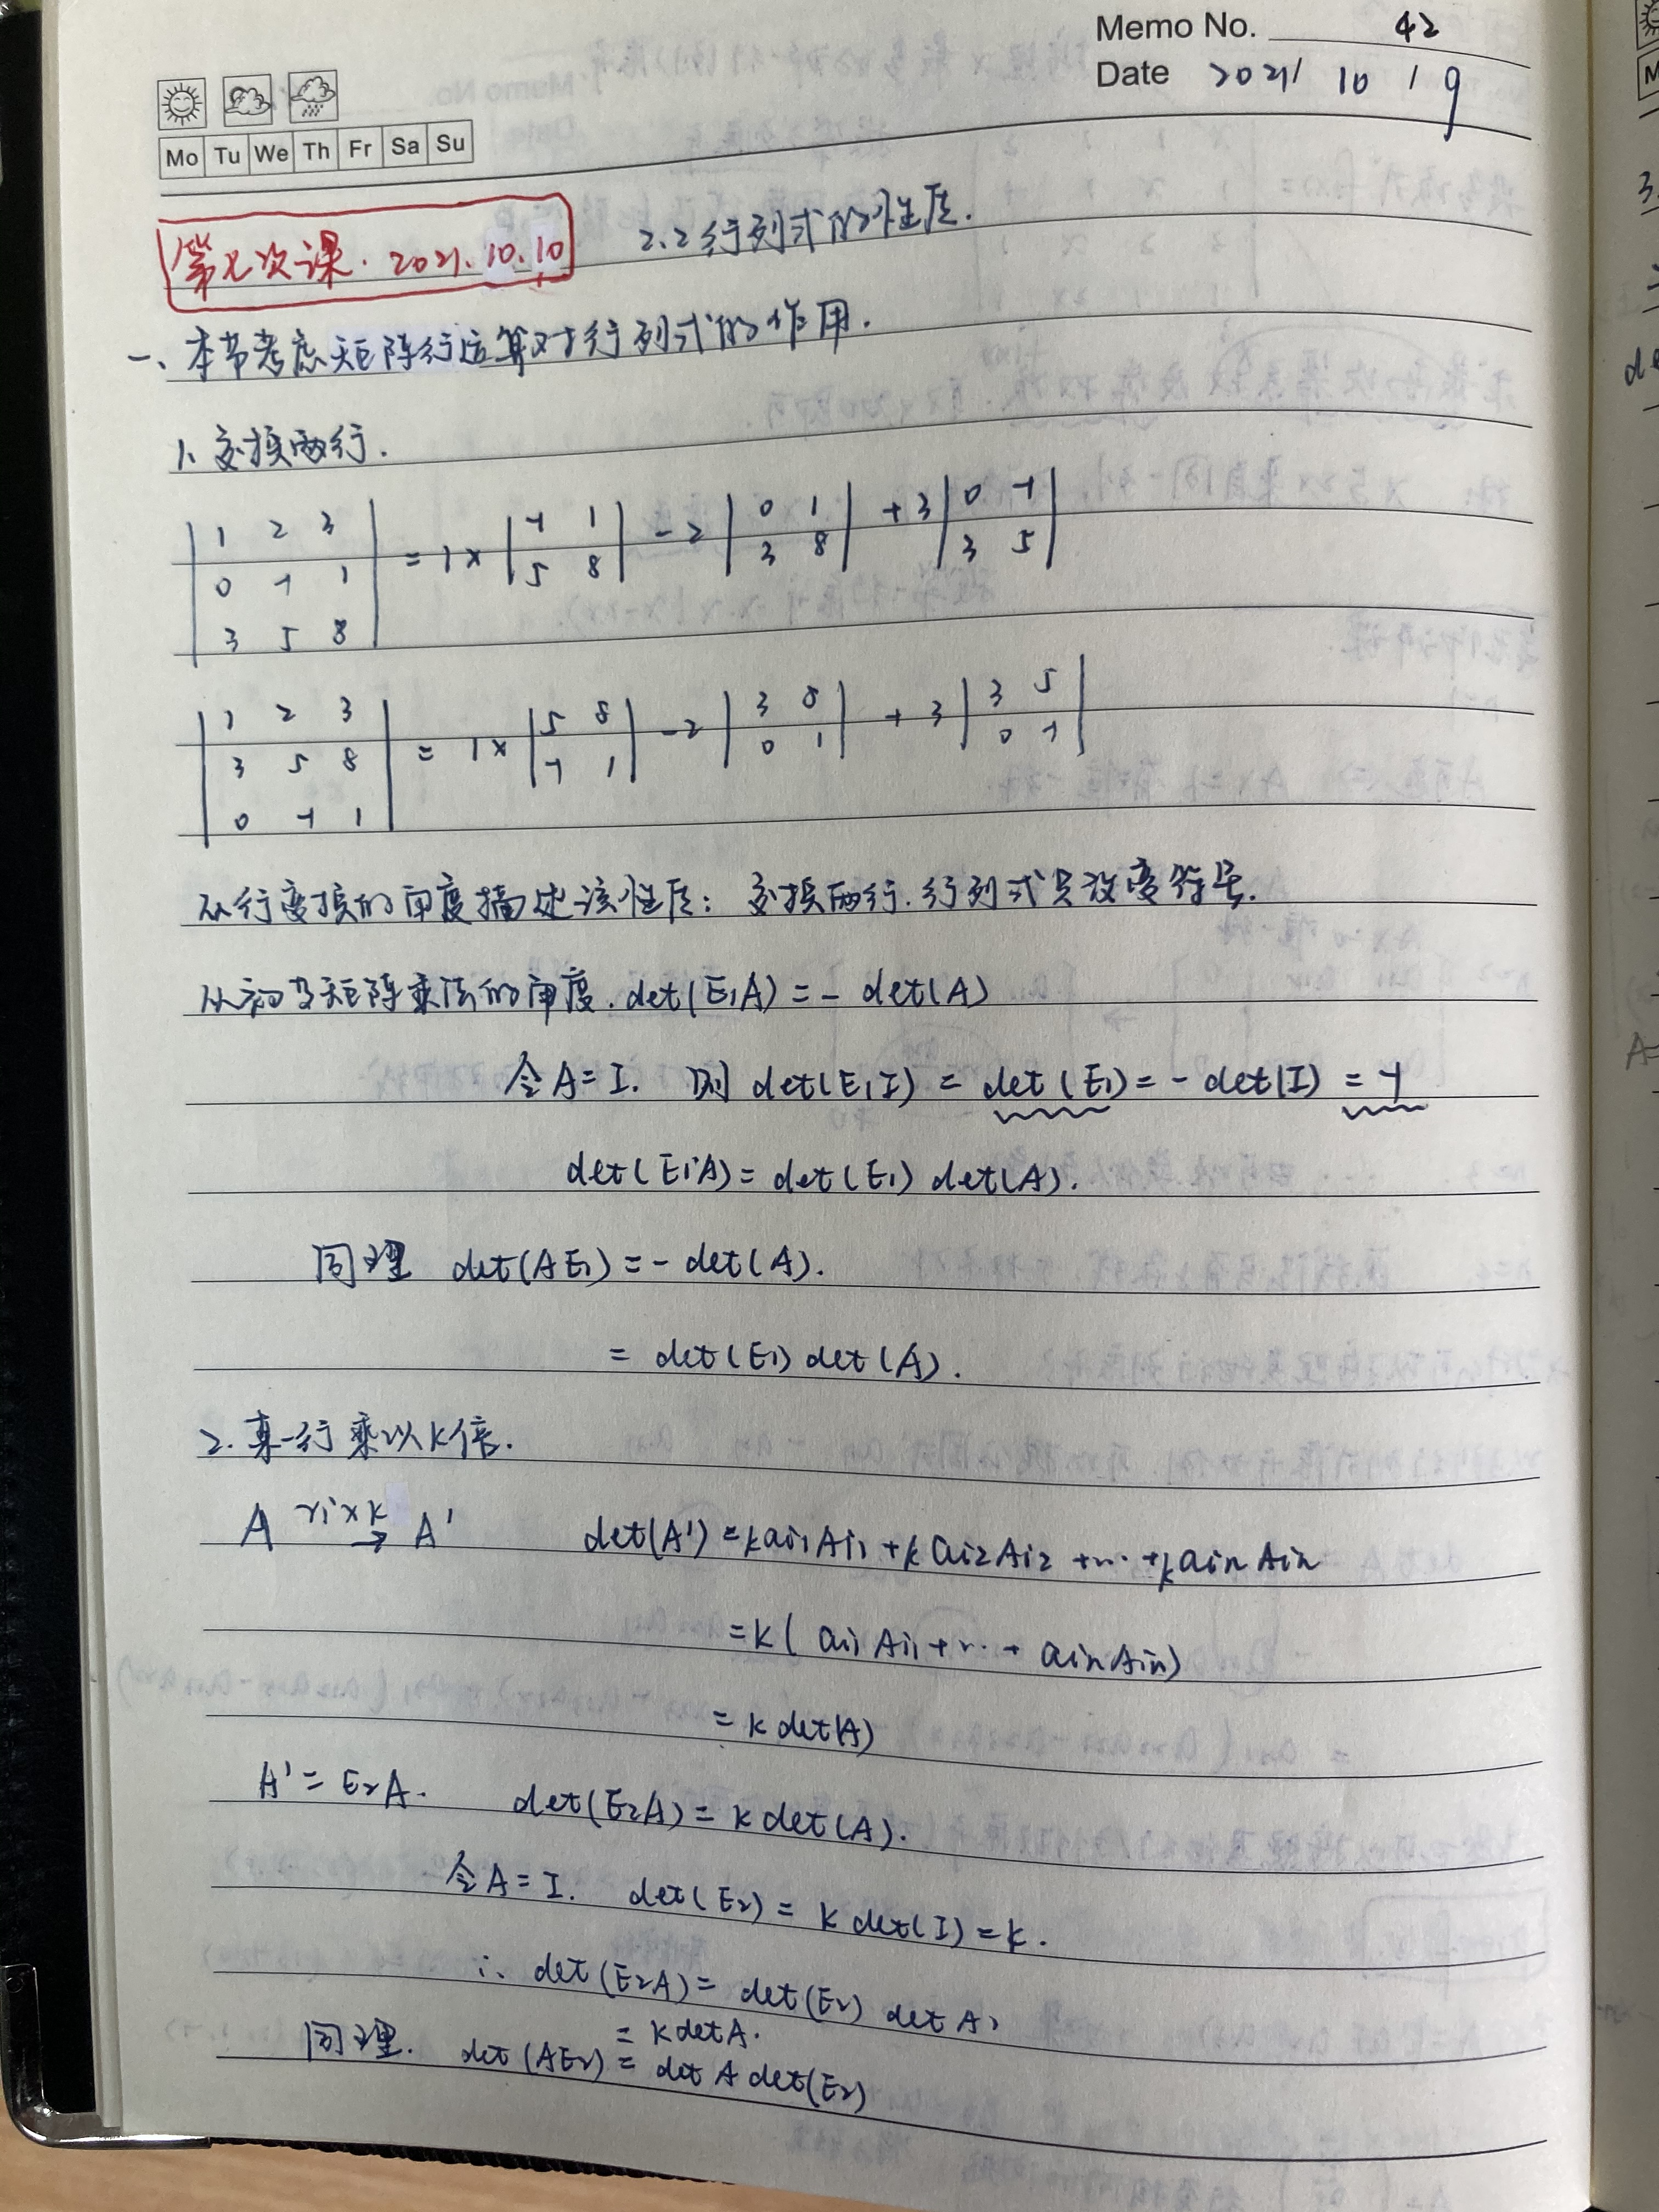 Memo No. 42
Date 2021/ 10 / 9
Mo Tu We Th Fr Sa Su
第七次课. 2021.10.10 2.2 行列式的性质.
一、本节考虑矩阵行运算对行列式的作用.
1. 交换两行.
| 1 2 3 |
| 0 -1 1 | = 1× | -1 1 ; 5 8 | - 2 | 0 1 ; 3 8 | + 3 | 0 -1 ; 3 5 |
| 3 5 8 |
| 1 2 3 |
| 3 5 8 | = 1× | 5 8 ; -1 1 | - 2 | 3 8 ; 0 1 | + 3 | 3 5 ; 0 -1 |
| 0 -1 1 |
从行变换的角度描述该性质: 交换两行. 行列式只改变符号.
从初等矩阵乘法的角度. det(E₁A) = - det(A)
令A=I. 则 det(E₁I) = det(E₁) = - det(I) = -1
det(E₁A) = det(E₁) det(A).
同理 det(AE₁) = - det(A).
= det(E₁) det(A).
2. 某一行乘以k倍.
A →(rᵢ×k) A' det(A') = kaᵢ₁Aᵢ₁ + kaᵢ₂Aᵢ₂ + ... + kaᵢₙAᵢₙ
= k( aᵢ₁Aᵢ₁ + ... + aᵢₙAᵢₙ)
= k det(A)
A' = E₂A. det(E₂A) = k det(A).
令A=I. det(E₂) = k det(I) = k.
∴ det(E₂A) = det(E₂) det A,
= k det A.
同理. det(AE₂) = det A det(E₂)